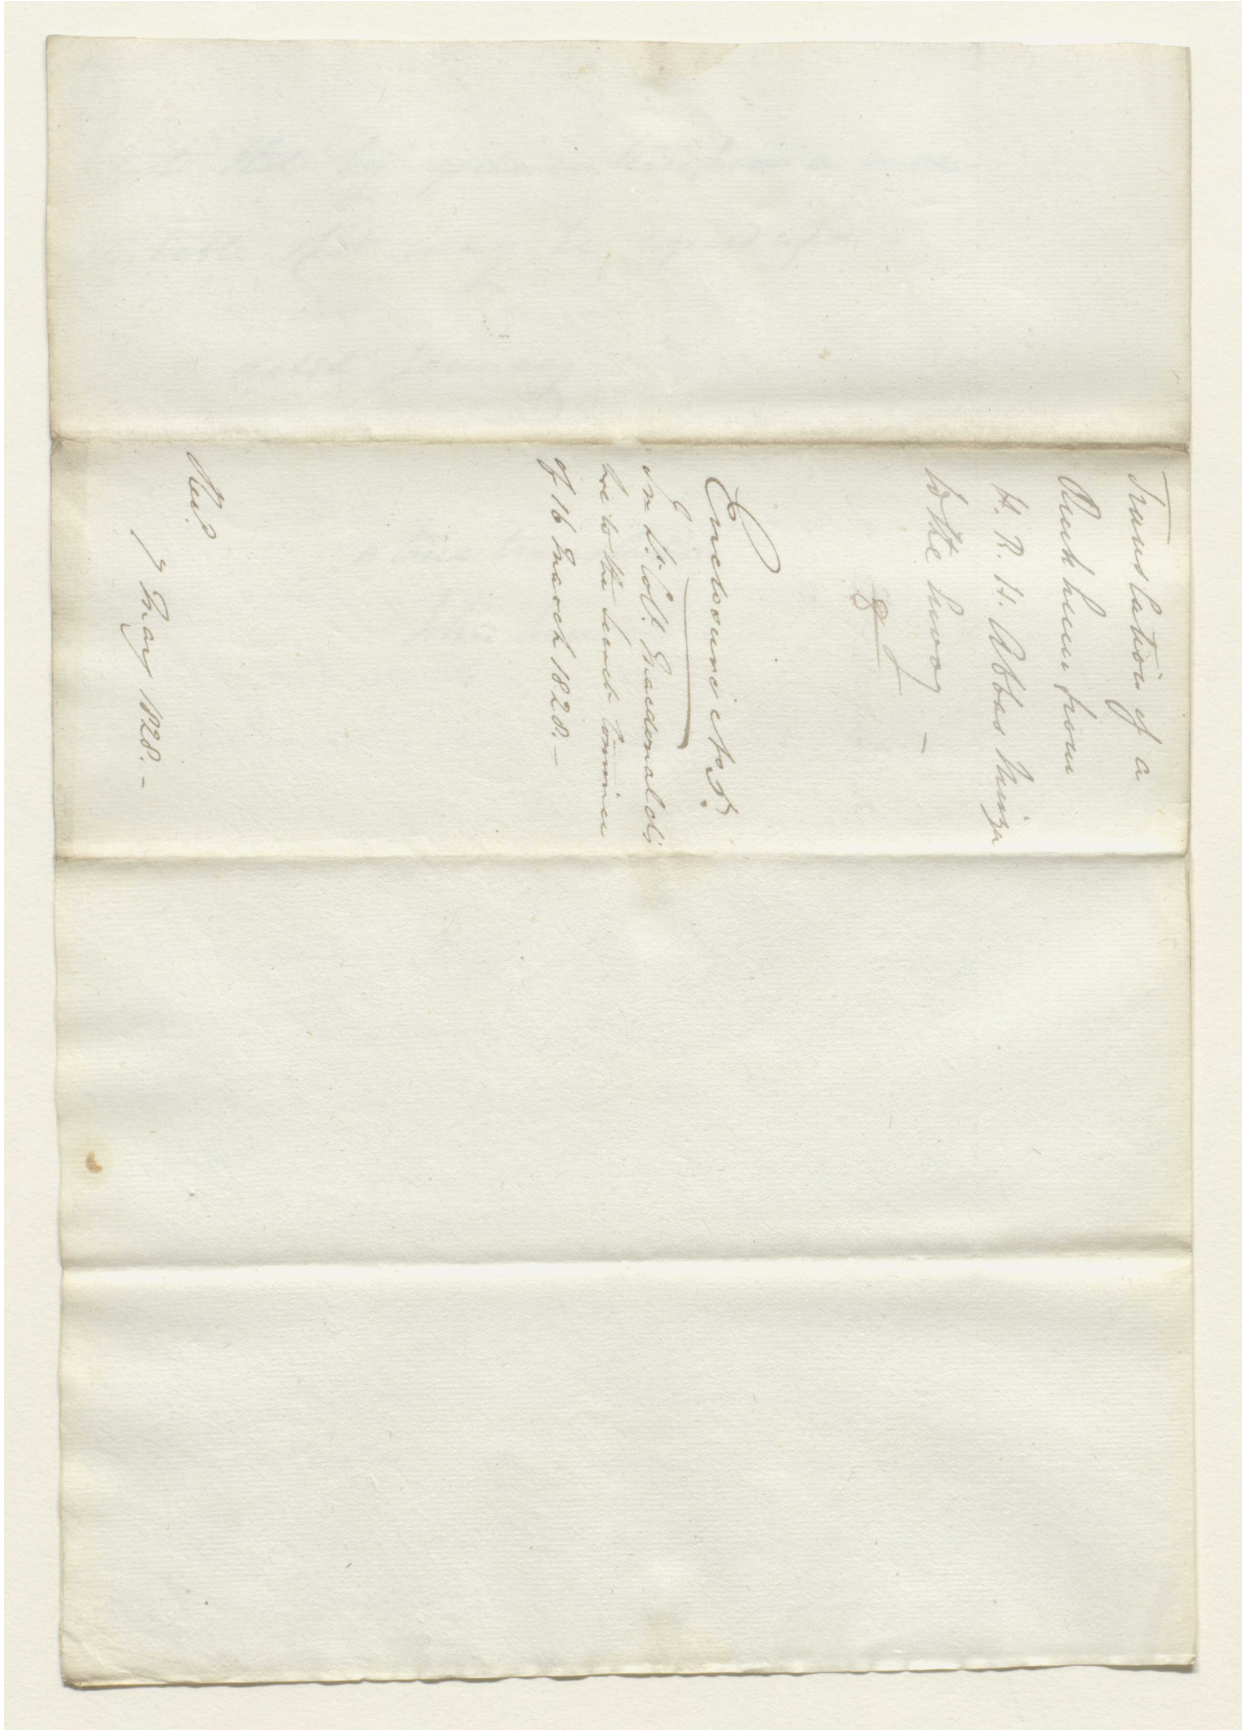 Translation of a
Rukhum from
H. R. H. Abbas Mirza
to the Envoy —
8
Enclosure No. 8.
In Lt. Coll. Macdonald's
Lre to the Secret Commee
of 16 March 1828. —
Recd.
7 May 1828. —